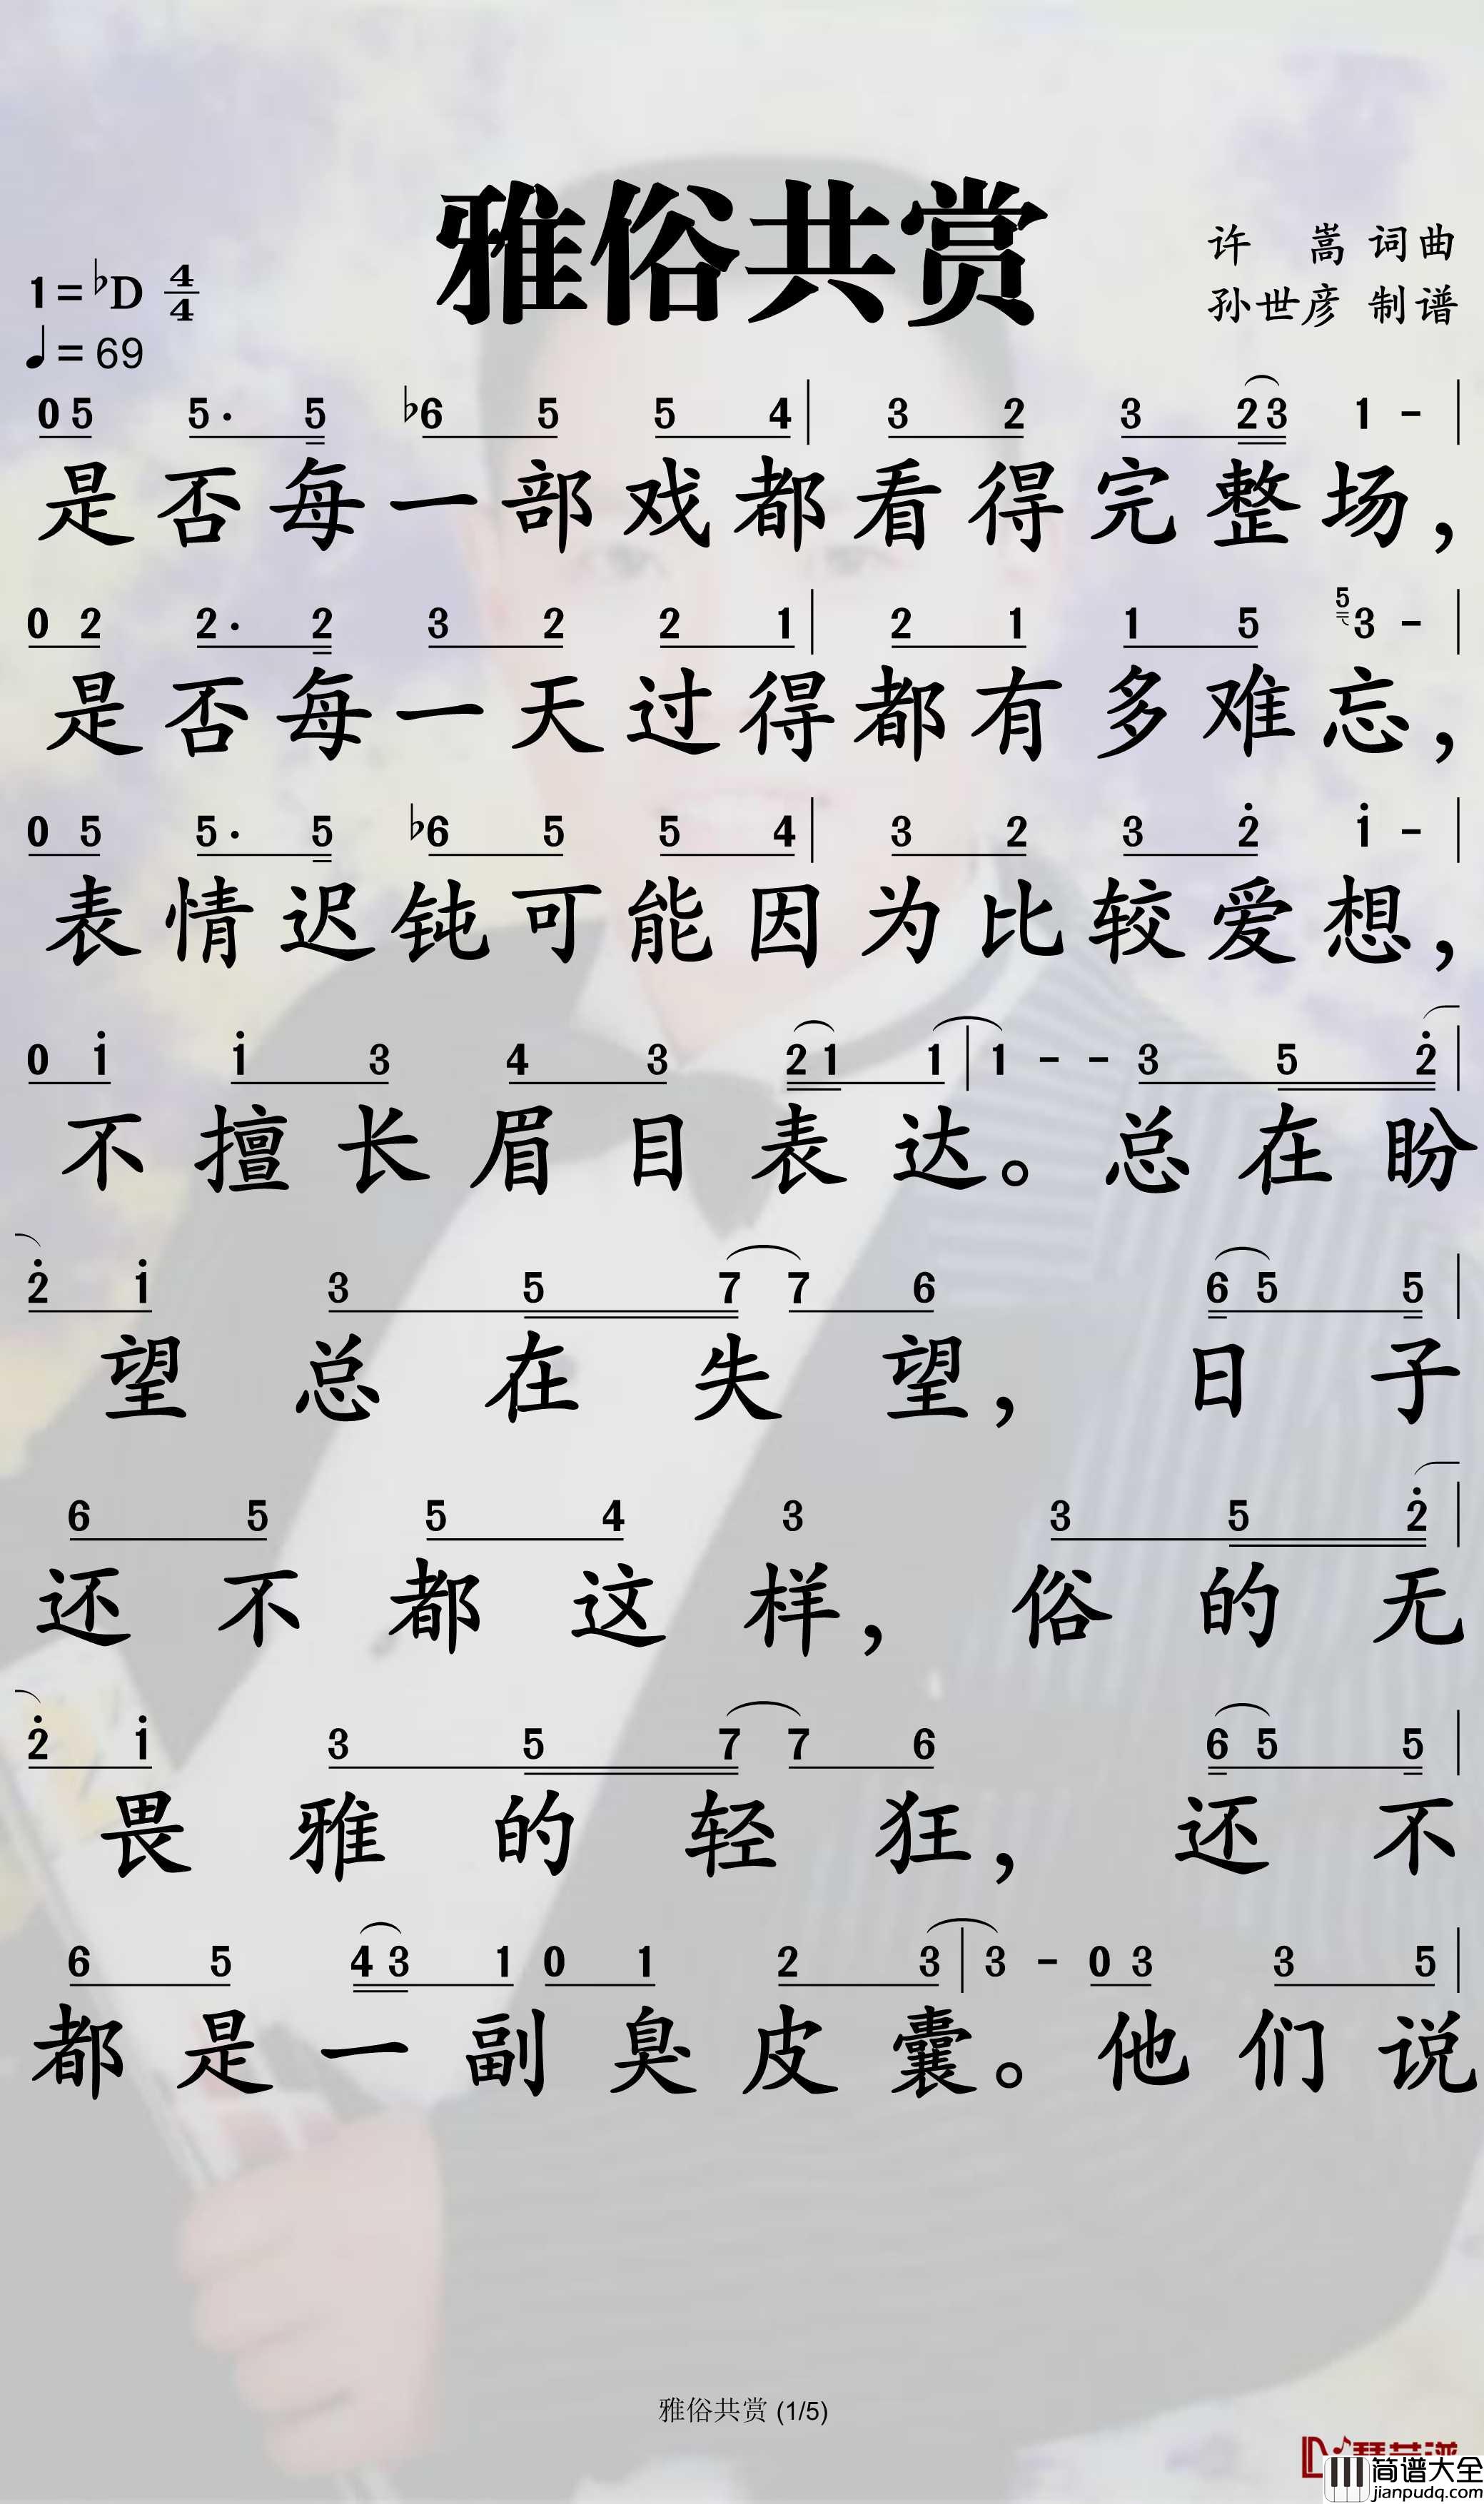 雅俗共赏
许 嵩 词曲
孙世彦 制谱
1=♭D 4/4
♩=69
0 5 5· 5 ♭6 5 5 4 | 3 2 3 2 3 1 - |
是否每一部戏都看得完整场，
0 2 2· 2 3 2 2 1 | 2 1 1 5 5 3 - |
是否每一天过得都有多难忘，
0 5 5· 5 ♭6 5 5 4 | 3 2 3 2̇ 1̇ - |
表情迟钝可能因为比较爱想，
0 1̇ 1̇ 3 4 3 2 1 1 | 1 - - 3 5 2̇ |
不擅长眉目表达。总在盼
2̇ 1̇ 3 5 7 7 6 6 5 5 |
望总在失望，日子
6 5 5 4 3 3 5 2̇ |
还不都这样，俗的无
2̇ 1̇ 3 5 7 7 6 6 5 5 |
畏雅的轻狂，还不
6 5 4 3 1 0 1 2 3 | 3 - 0 3 3 5 |
都是一副臭皮囊。他们说
雅俗共赏 (1/5)
简谱大全
jianpudq.com